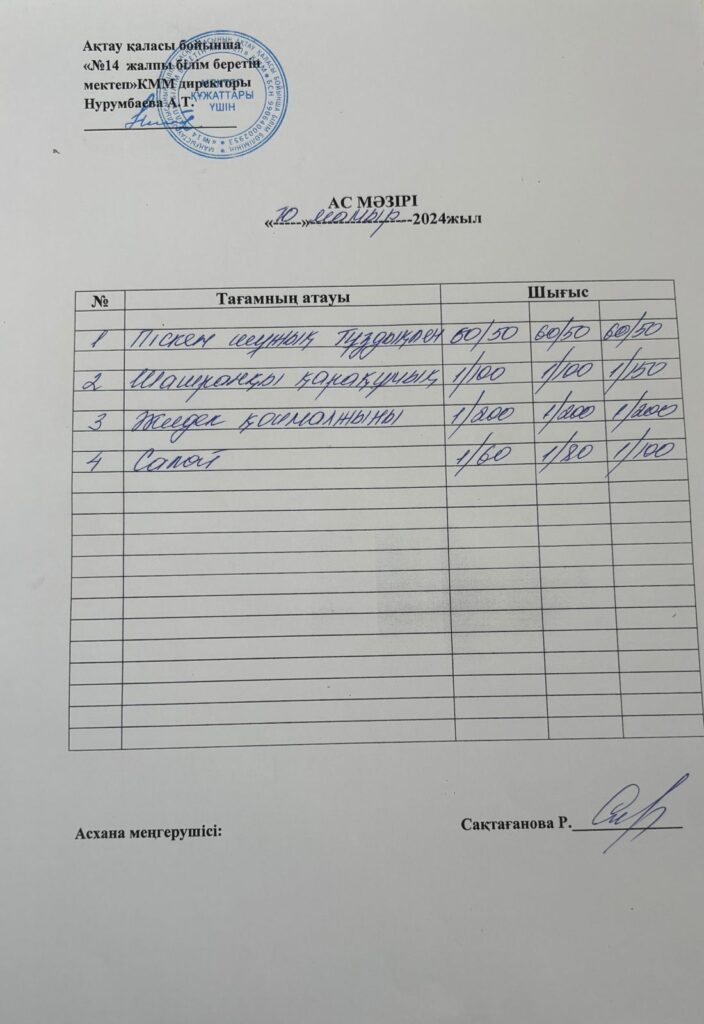 Ақтау қаласы бойынша
«№14 жалпы білім беретін
мектеп»КММ директоры
Нурумбаева А.Т.
МЕКТЕП
ҚҰЖАТТАРЫ
ҮШІН
АС МӘЗІРІ
«--10--»--мамыр--2024жыл
№ Тағамның атауы Шығыс
1 Піскен шұжық Тұздықпен 60/50 60/50 60/50
2 Шашыранқы қарақұмық 1/100 1/100 1/150
3 Жидек қоймалжыны 1/200 1/200 1/200
4 Салат 1/60 1/80 1/100
Асхана меңгерушісі: Сақтағанова Р.